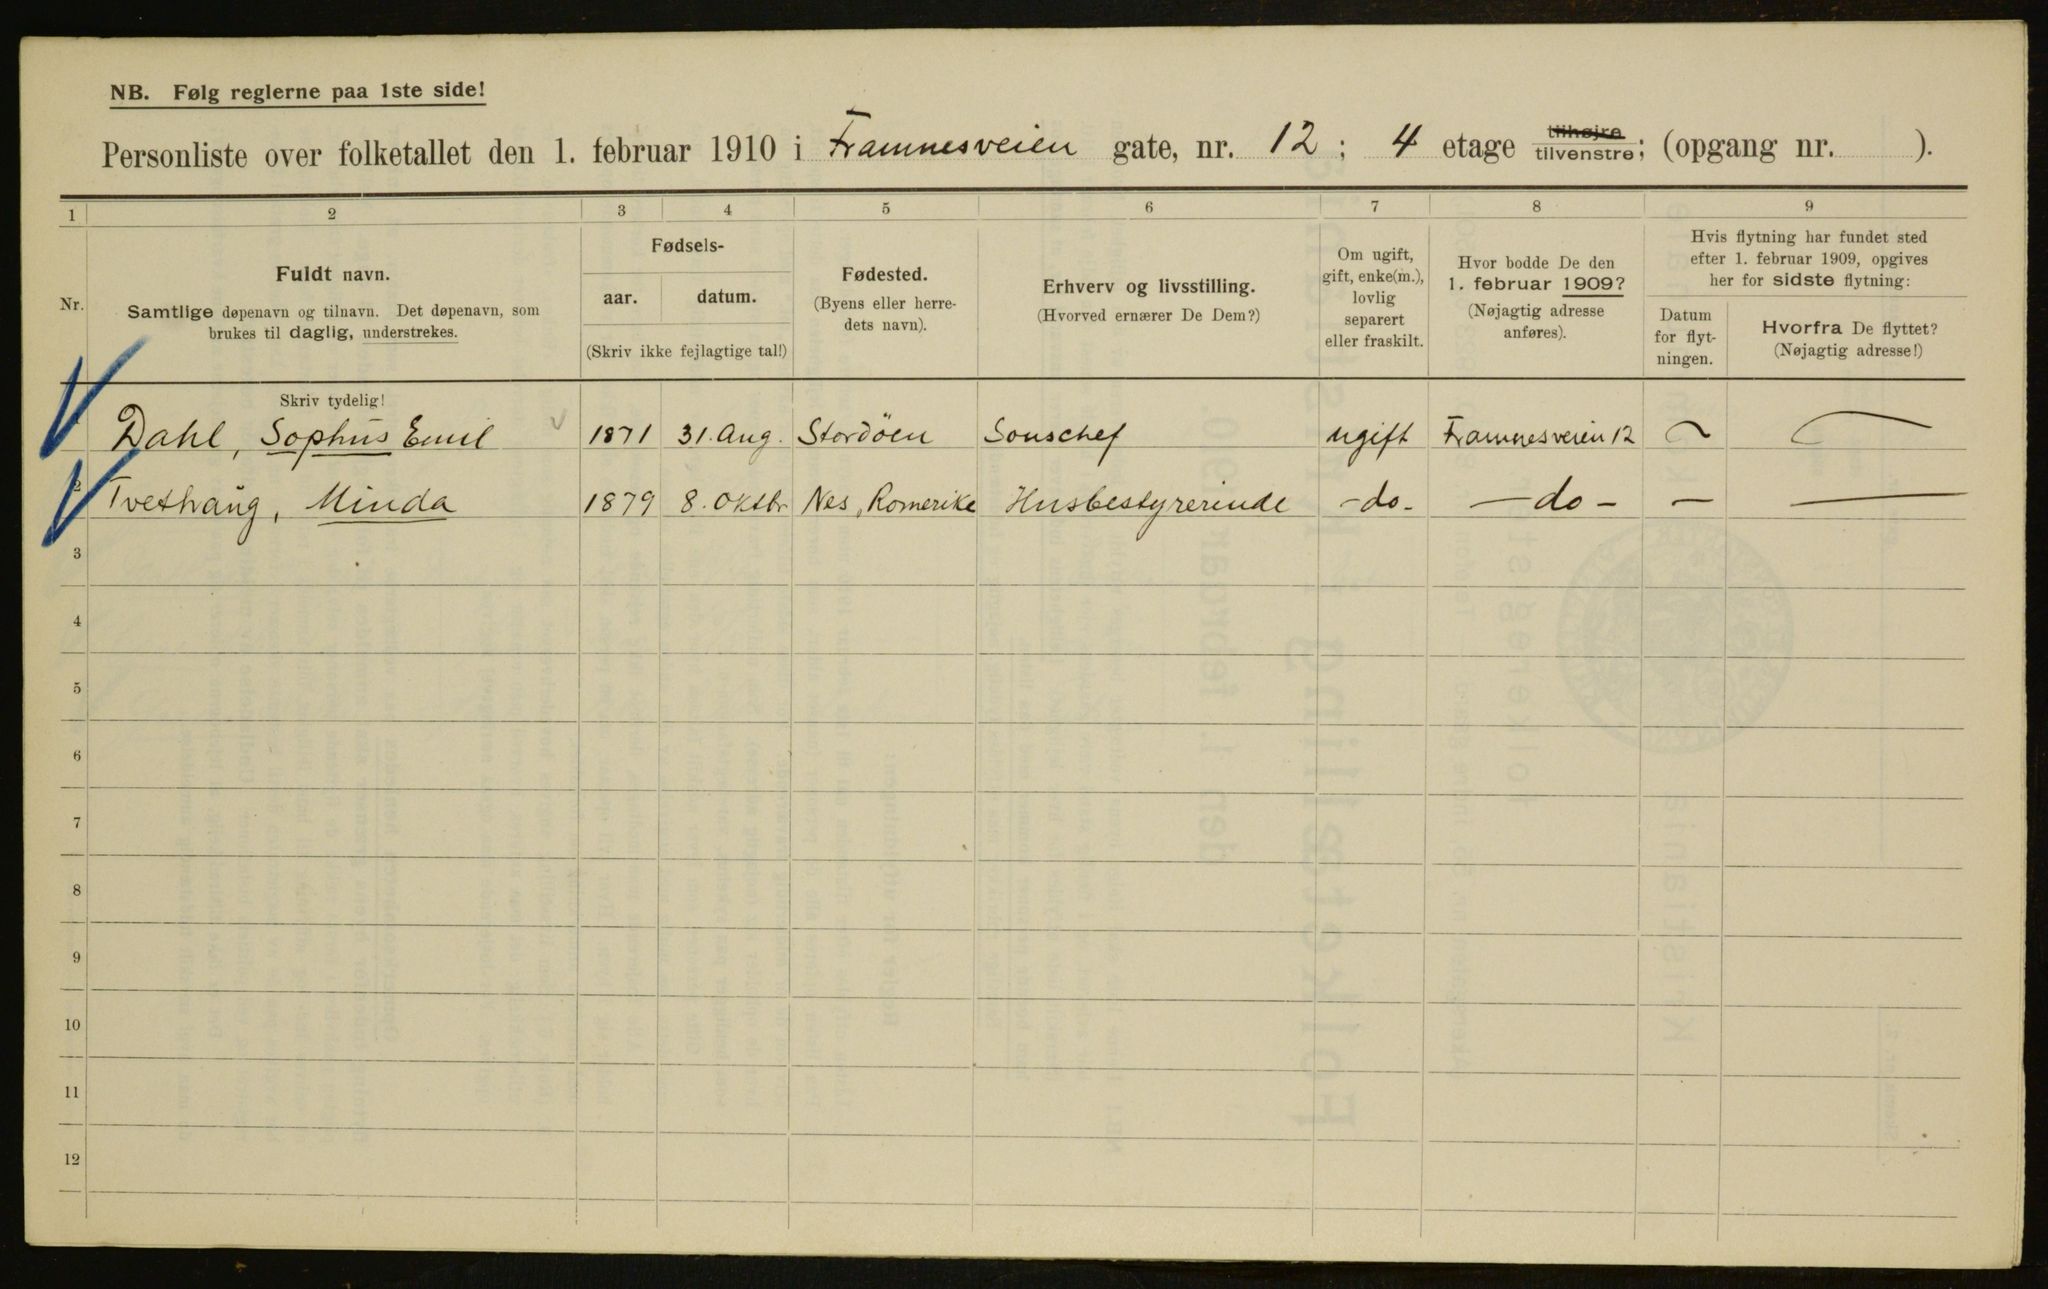 NB. Følg reglerne paa 1ste side!
Personliste over folketallet den 1. februar 1910 i Framnesveien gate, nr. 12; 4 etage tilhøjre tilvenstre; (opgang nr. ).
1 2 3 4 5 6 7 8 9
Nr.
Fuldt navn.
Samtlige døpenavn og tilnavn. Det døpenavn, som
brukes til daglig, understrekes.
Fødsels-
aar. datum.
(Skriv ikke fejlagtige tal!)
Fødested.
(Byens eller herre-
dets navn).
Erhverv og livsstilling.
(Hvorved ernærer De Dem?)
Om ugift,
gift, enke(m.),
lovlig
separert
eller fraskilt.
Hvor bodde De den
1. februar 1909?
(Nøjagtig adresse
anføres).
Hvis flytning har fundet sted
efter 1. februar 1909, opgives
her for sidste flytning:
Datum
for flyt-
ningen.
Hvorfra De flyttet?
(Nøjagtig adresse!)
Skriv tydelig!
Dahl, Sophus Emil 1871 31. Aug. Stordöen Souschef ugift Framnesveien 12
2 Tvethaug, Minda 1879 8. Oktbr Nes, Romerike Husbestyrerinde -do- -do- - -
3
4
5
6
7
8
9
10
11
12